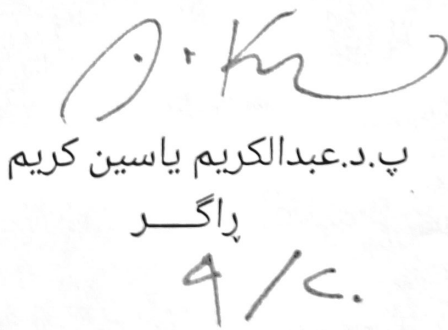 پ.د.عبدالکریم یاسین کریم
ڕاگـــر
٩/٢٠